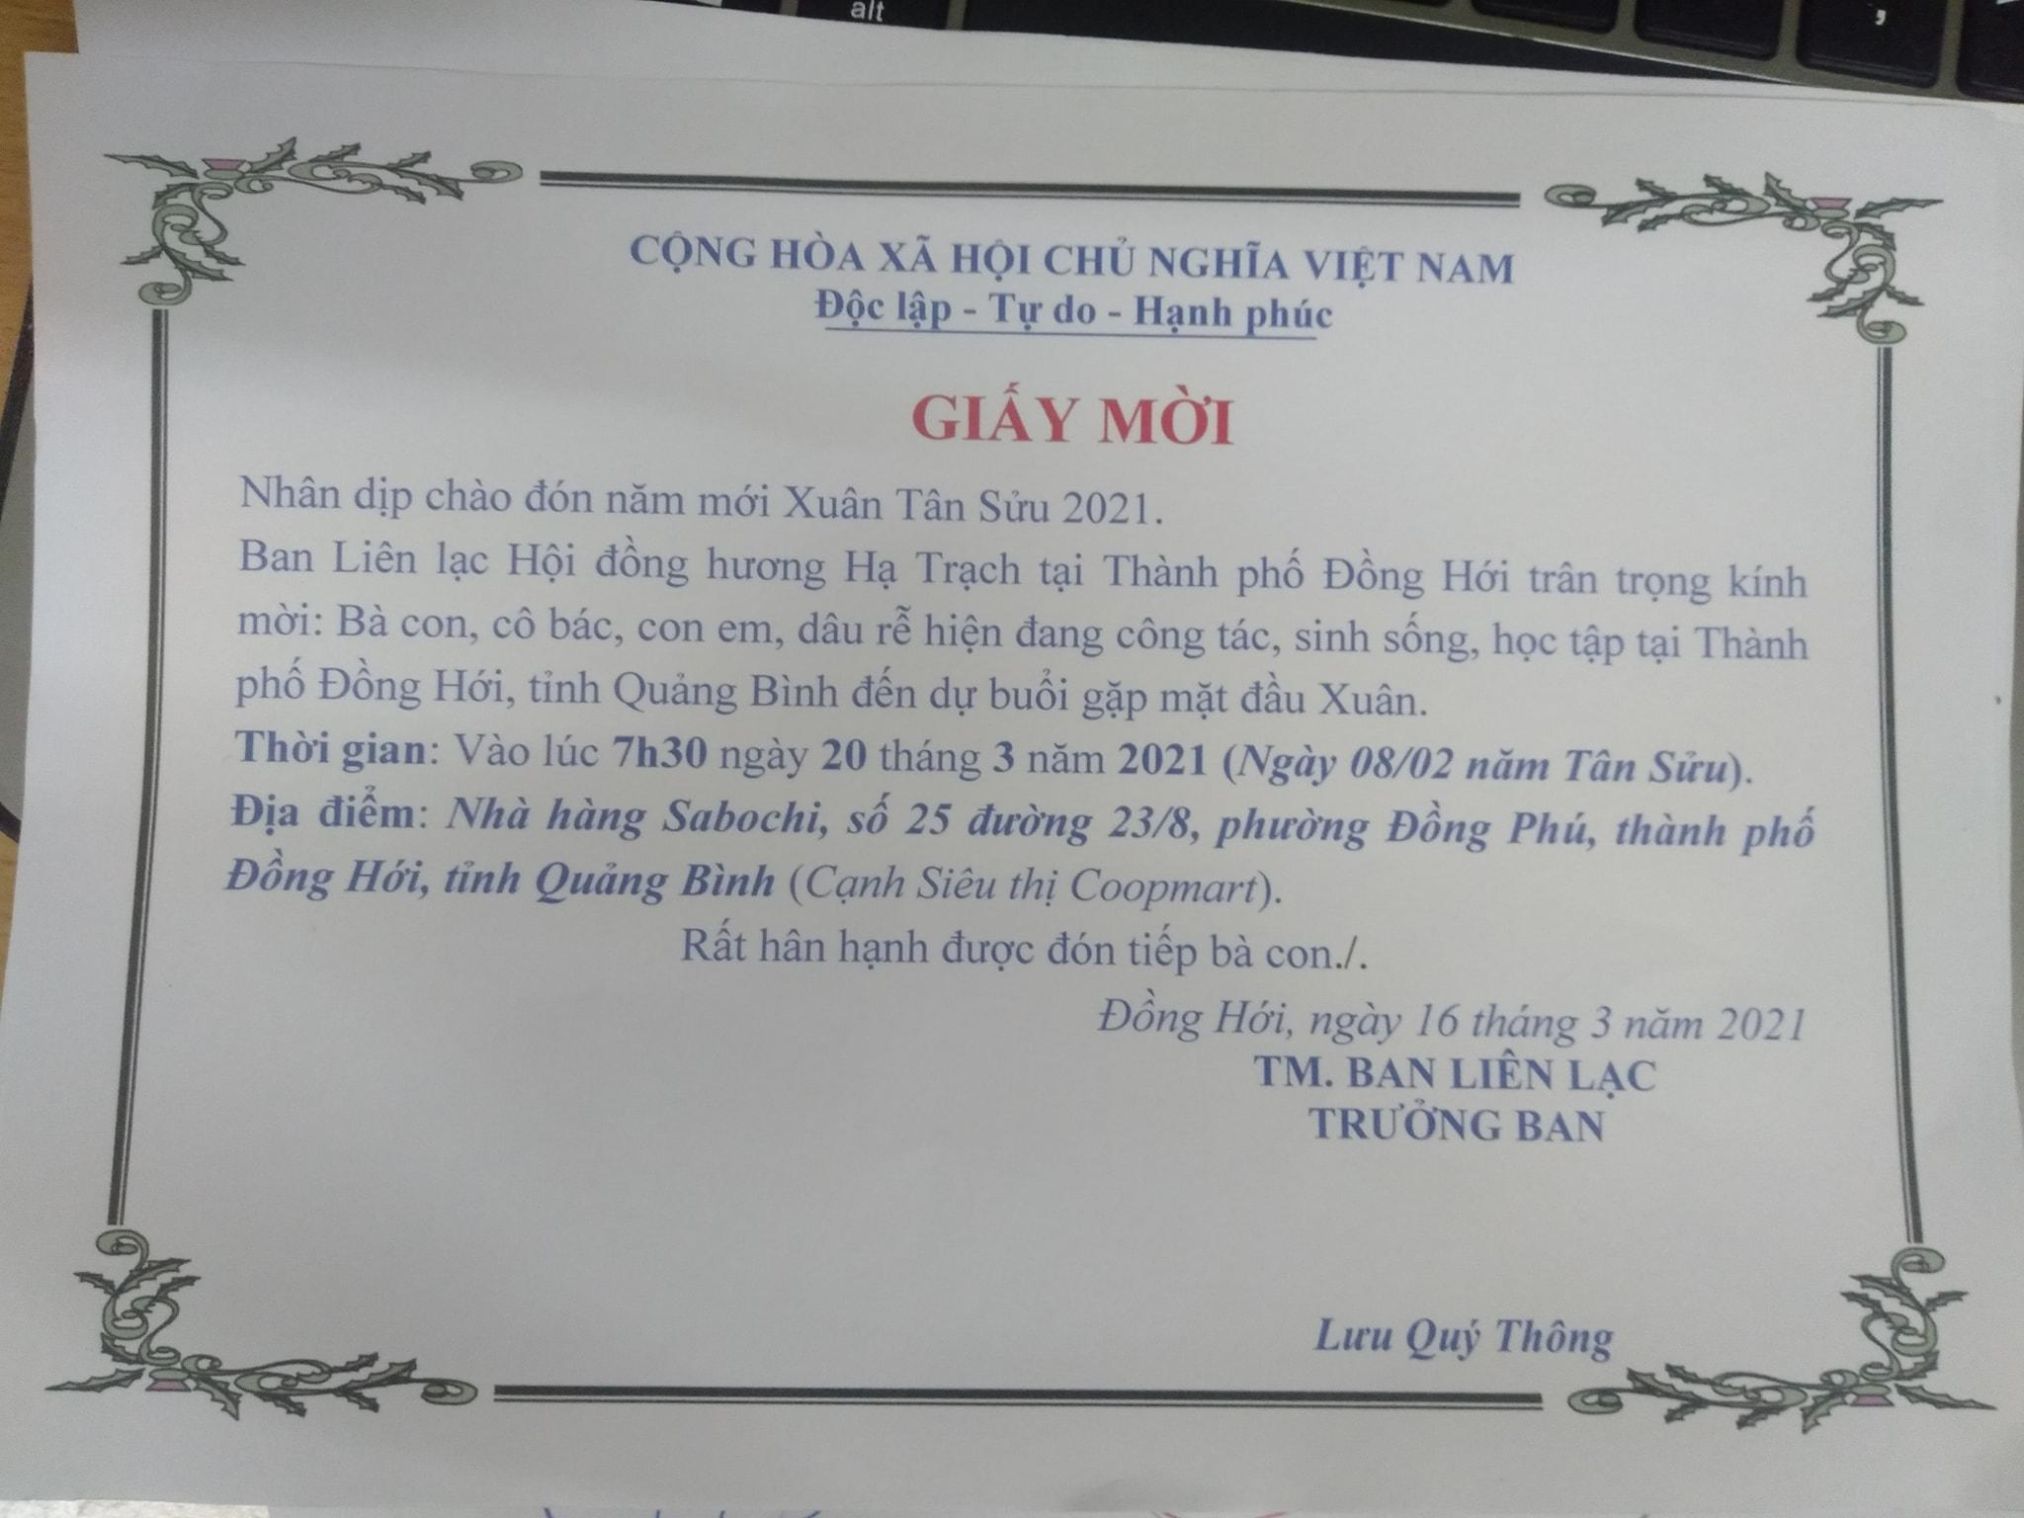 alt
CỘNG HÒA XÃ HỘI CHỦ NGHĨA VIỆT NAM
Độc lập - Tự do - Hạnh phúc
GIẤY MỜI
Nhân dịp chào đón năm mới Xuân Tân Sửu 2021.
Ban Liên lạc Hội đồng hương Hạ Trạch tại Thành phố Đồng Hới trân trọng kính
mời: Bà con, cô bác, con em, dâu rễ hiện đang công tác, sinh sống, học tập tại Thành
phố Đồng Hới, tỉnh Quảng Bình đến dự buổi gặp mặt đầu Xuân.
Thời gian: Vào lúc 7h30 ngày 20 tháng 3 năm 2021 (Ngày 08/02 năm Tân Sửu).
Địa điểm: Nhà hàng Sabochi, số 25 đường 23/8, phường Đồng Phú, thành phố
Đồng Hới, tỉnh Quảng Bình (Cạnh Siêu thị Coopmart).
Rất hân hạnh được đón tiếp bà con./.
Đồng Hới, ngày 16 tháng 3 năm 2021
TM. BAN LIÊN LẠC
TRƯỞNG BAN
Lưu Quý Thông